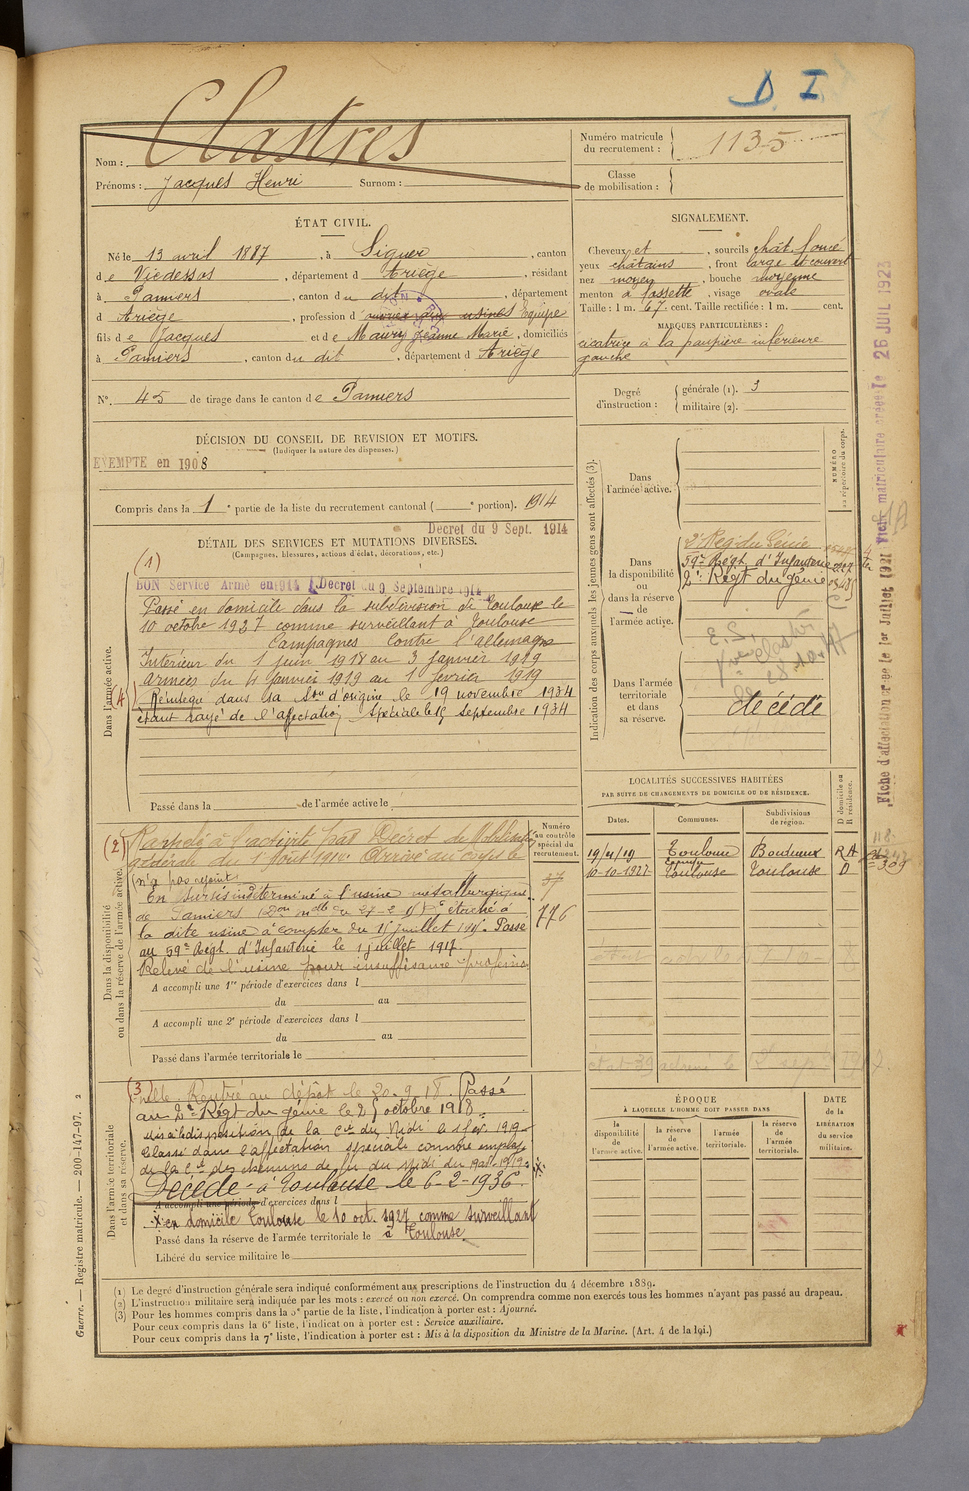 D. I
Clastres
Nom :
Prénoms : Jacques Henri Surnom :
Numéro matricule du recrutement : 1135
Classe de mobilisation :
ÉTAT CIVIL.
Né le 13 avril 1887, à Siguer, canton
de Vicdessos, département d Ariège, résidant
à Pamiers, canton du dit, département
d Ariège, profession d ouvrier aux usines Equipe
fils de Jacques et de Maury Jeanne Marie, domiciliés
à Pamiers, canton du dit, département d Ariège
N° 45 de tirage dans le canton de Pamiers
SIGNALEMENT.
Cheveux et, sourcils chât. foncé
yeux châtains, front large et couvert
nez moyen, bouche moyenne
menton à fossette, visage ovale
Taille : 1 m. 67 cent. Taille rectifiée : 1 m. cent.
MARQUES PARTICULIÈRES :
cicatrice à la paupière inférieure
gauche
Degré d'instruction : générale (1). 3
militaire (2).
DÉCISION DU CONSEIL DE REVISION ET MOTIFS.
(Indiquer la nature des dispenses.)
EXEMPTE en 1908
Compris dans la 1e partie de la liste du recrutement cantonal ( e portion). 1914
Decret du 9 Sept. 1914
DÉTAIL DES SERVICES ET MUTATIONS DIVERSES.
(Campagnes, blessures, actions d'éclat, décorations, etc.)
(1)
Dans l'armée active.
BON Service Armé en 1914 Decret du 9 Septembre 1914
Passé en domicile dans la subdivision de Toulouse le
10 octobre 1927 comme surveillant à Toulouse
Campagnes Contre l'allemagne
Intérieur du 1 juin 1918 au 3 janvier 1919
armées du 4 janvier 1919 au 1 février 1919
(4) Réintégré dans sa Son d'origine le 19 novembre 1934
étant rayé de l'affectation Spéciale le 15 septembre 1934
Passé dans la de l'armée active le
Indication des corps auxquels les jeunes gens sont affectés (3).
NUMÉRO au répertoire du corps.
Dans l'armée active.
Dans la disponibilité ou dans la réserve de l'armée active.
2e Reg du Génie
59e Régt d'Infanterie
2e Régt du génie
Dans l'armée territoriale et dans sa réserve.
décédé
Fiche d'affectation créée le 1er Juillet 1921 Fiche matriculaire créée le 26 JUIL 1923
LOCALITÉS SUCCESSIVES HABITÉES
PAR SUITE DE CHANGEMENTS DE DOMICILE OU DE RÉSIDENCE.
D domicile ou R résidence.
Dates. Communes. Subdivisions de région.
19/4/19 Toulouse Bordeaux R A
10-10-1927 Toulouse Toulouse D
Numéro au contrôle spécial du recrutement.
37
776
Dans la disponibilité ou dans la réserve de l'armée active.
(2) Rappelé à l'activité par Décret de Mobilisation
générale du 1 Août 1914. Arrivé au corps le
n'a pas rejoint
En sursis indéterminé à l'usine métallurgique
de Pamiers
la dite usine à compter du 1 juillet Passé
au 59e Régt. d'Infanterie le 1 juillet 1917
Relevé de l'usine pour insuffisance profession
A accompli une 1re période d'exercices dans l
du au
A accompli une 2e période d'exercices dans l
du au
Passé dans l'armée territoriale le
Dans l'armée territoriale et dans sa réserve.
(3) nelle. Rentré au dépôt le 20.9.18. Passé
au 2e Régt du génie le 25 octobre 1918.
Mis à la disposition de la Cie du Midi le
Classé dans l'affectation spéciale comme employé
de la Cie des chemins de fer du Midi du
Décédé à Toulouse le 6-2-1936.
A accompli une période d'exercices dans l
en domicile Toulouse le 10 oct. 1927 comme surveillant
à Toulouse
Passé dans la réserve de l'armée territoriale le
Libéré du service militaire le
ÉPOQUE
À LAQUELLE L'HOMME DOIT PASSER DANS
la disponibilité de l'armée active.
la réserve de l'armée active.
l'armée territoriale.
la réserve de l'armée territoriale.
DATE de la LIBÉRATION du service militaire.
(1) Le degré d'instruction générale sera indiqué conformément aux prescriptions de l'instruction du 4 décembre 1889.
(2) L'instruction militaire sera indiquée par les mots : exercé ou non exercé. On comprendra comme non exercés tous les hommes n'ayant pas passé au drapeau.
(3) Pour les hommes compris dans la 5e partie de la liste, l'indication à porter est : Ajourné.
Pour ceux compris dans la 6e liste, l'indication à porter est : Service auxiliaire.
Pour ceux compris dans la 7e liste, l'indication à porter est : Mis à la disposition du Ministre de la Marine. (Art. 4 de la loi.)
Guerre. — Registre matricule. — 200-147-97. 2